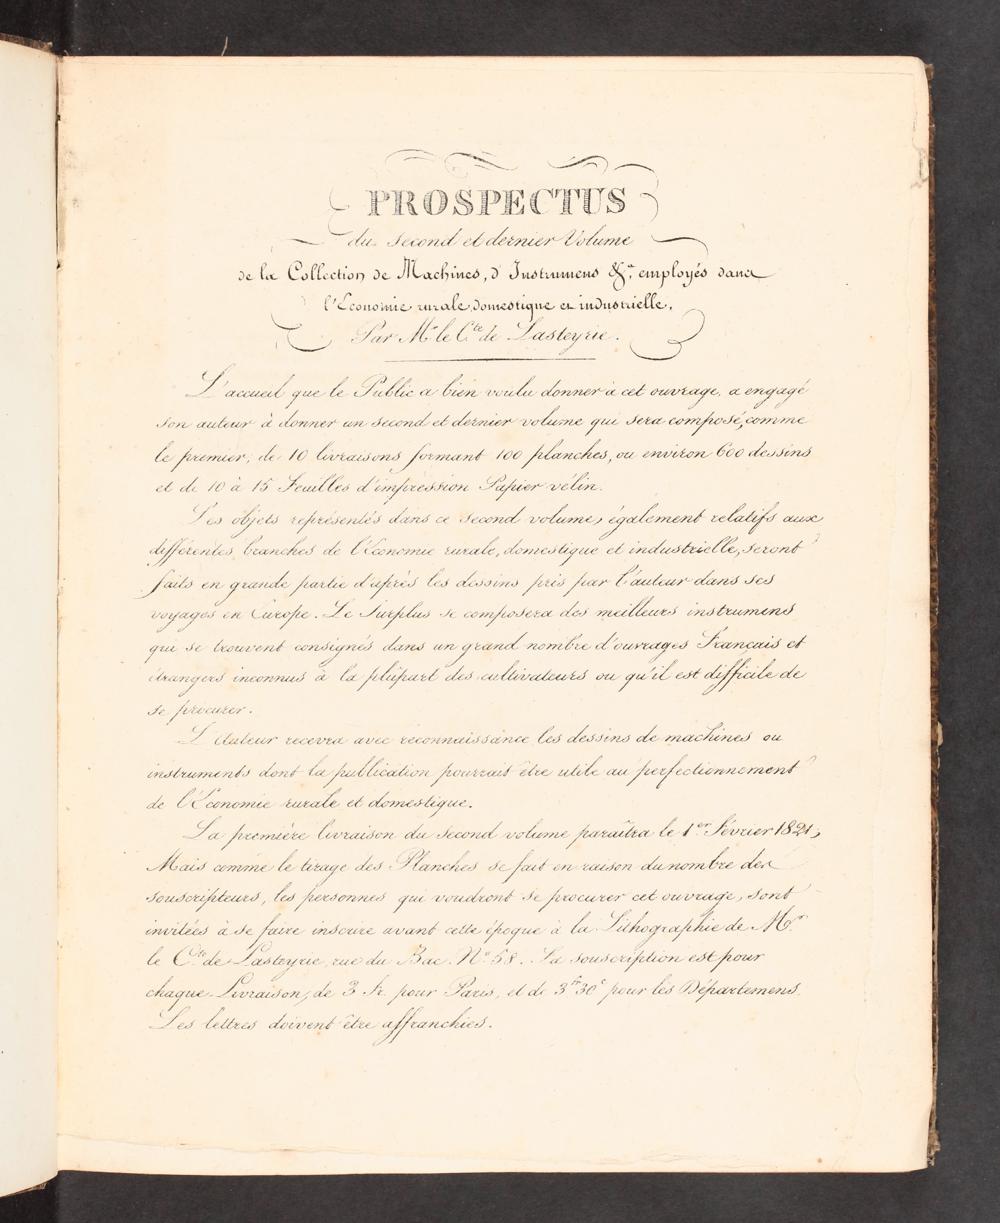 PROSPECTUS
du second et dernier Volume
de la Collection de Machines, d'Instrumens &a. employés dans
l'Économie rurale, domestique et industrielle,
Par Mr. le Cte. de Lasteyrie.
L'accueil que le Public a bien voulu donner à cet ouvrage, a engagé
son auteur à donner un second et dernier volume qui sera composé, comme
le premier, de 10 livraisons formant 100 planches, ou environ 600 dessins
et de 10 à 15 Feuilles d'impression Papier vélin.
Les objets représentés dans ce second volume, également relatifs aux
différentes branches de l'Économie rurale, domestique et industrielle, seront
faits en grande partie d'après les dessins pris par l'auteur dans ses
voyages en Europe. Le Surplus se composera des meilleurs instrumens
qui se trouvent consignés dans un grand nombre d'ouvrages Français et
étrangers inconnus à la plûpart des cultivateurs ou qu'il est difficile de
se procurer.
L'Auteur recevra avec reconnaissance les dessins de machines ou
instruments dont la publication pourrait être utile au perfectionnement
de l'Économie rurale et domestique.
La première livraison du second volume paraîtra le 1er Février 1821,
Mais comme le tirage des Planches se fait en raison du nombre des
souscripteurs, les personnes qui voudront se procurer cet ouvrage, sont
invitées à se faire inscrire avant cette époque à la Lithographie de Mr.
le Cte. de Lasteyrie, rue du Bac, No. 58. La souscription est pour
chaque Livraison, de 3 Fr. pour Paris, et de 3fr 30c pour les Départemens.
Les lettres doivent être affranchies.